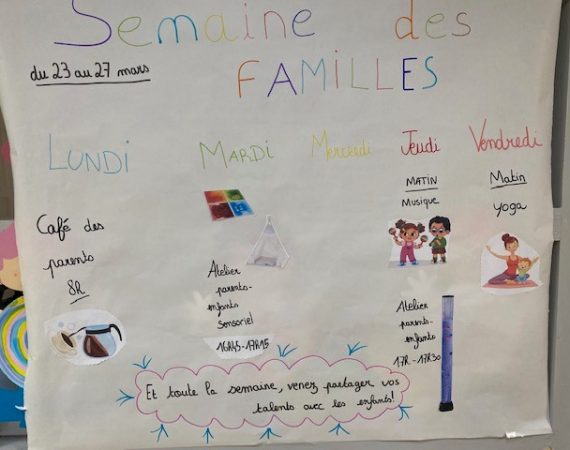 Semaine des
FAMILLES
du 23 au 27 mars
LUNDI
Café des
parents
8h
MARDI
Atelier
parents-
enfants
sensoriel
16h45-17h15
Mercredi
Jeudi
MATIN
Musique
Atelier
parents-
enfants
17h-17h30
Vendredi
Matin
yoga
Et toute la semaine, venez partager vos
talents avec les enfants!